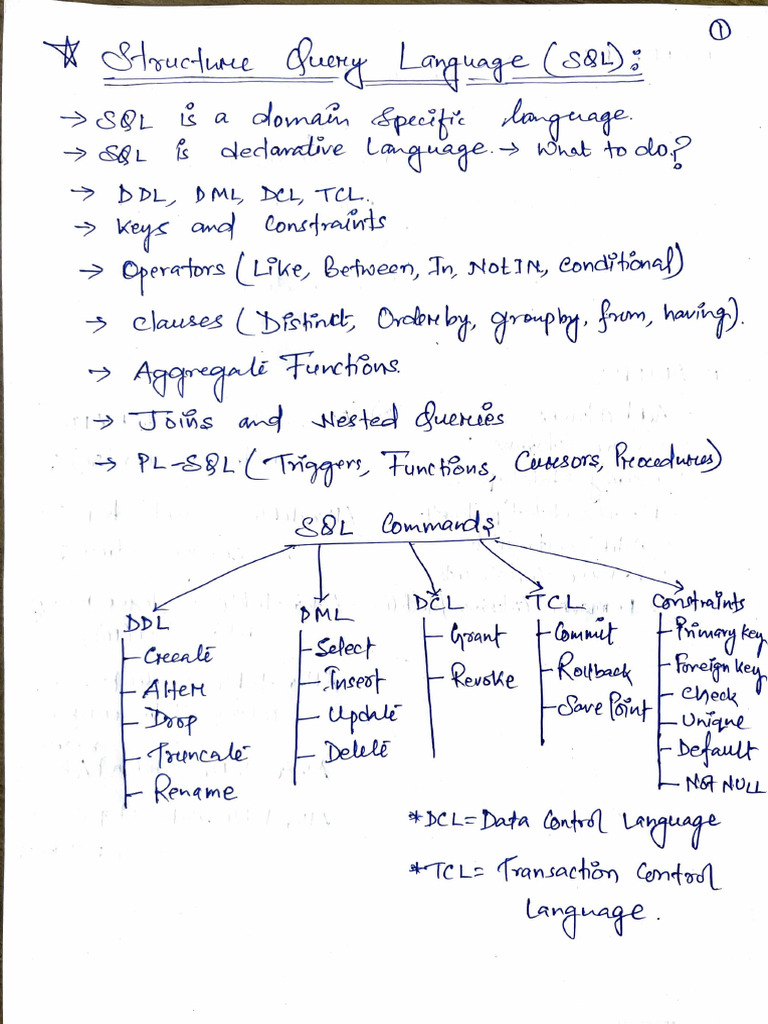 ①
☆ Structure Query Language (SQL):
→ SQL is a domain specific language.
→ SQL is declarative Language. → What to do?
→ DDL, DML, DCL, TCL.
→ Keys and Constraints
→ Operators (Like, Between, In, Not IN, Conditional)
→ Clauses (Distinct, Order by, group by, from, having).
→ Aggregate Functions.
→ Joins and Nested Queries
→ PL-SQL. (Triggers, Functions, Cursors, Procedures)
SQL Commands
DDL
Create
Alter
Drop
Truncate
Rename
DML
Select
Insert
Update
Delete
DCL
Grant
Revoke
TCL
Commit
Rollback
Save Point
Constraints
Primary key
Foreign key
Check
Unique
Default
NOT NULL
*DCL = Data Control Language
*TCL = Transaction Control
Language.